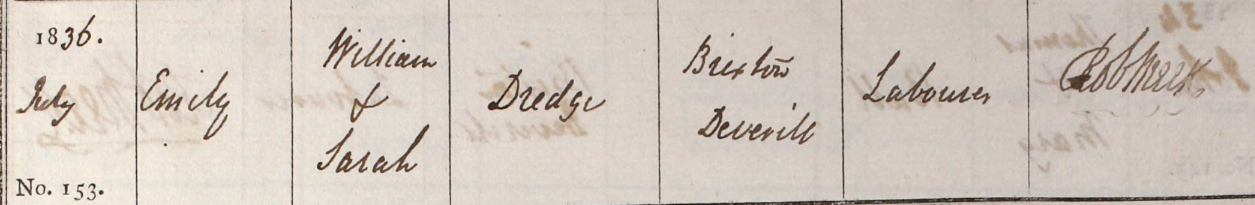 1836.
July
No. 153.
Emily
William
&
Sarah
Dredge
Brixton
Deverill
Labourer